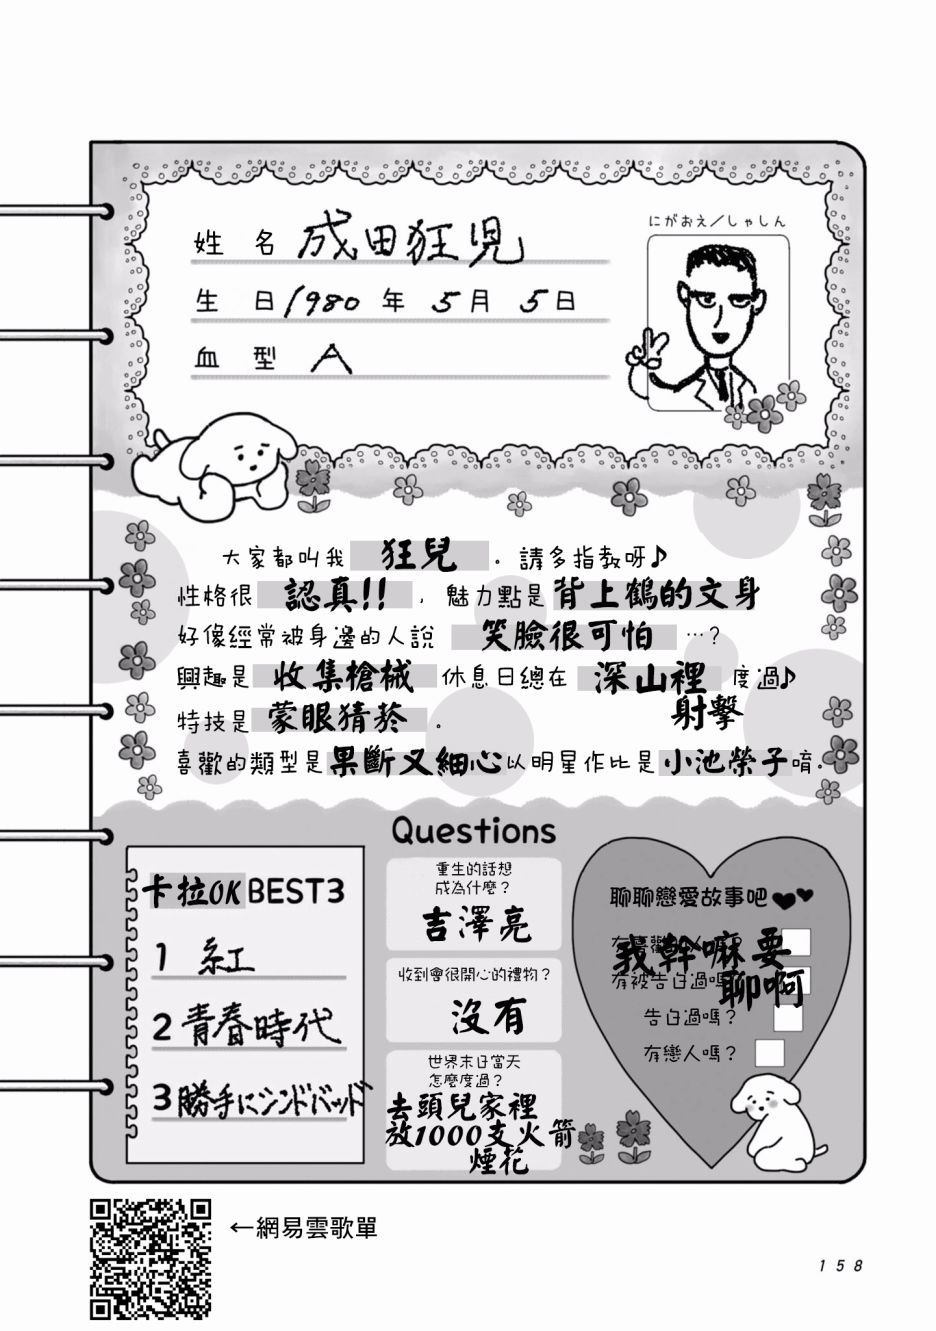 にがおえ／しゃしん
姓 名 成田狂児
生 日 1980 年 5 月 5 日
血 型 A
大家都叫我 狂兒 。請多指教呀♪
性格很 認真!! ，魅力點是 背上鶴的文身
好像經常被身邊的人說 笑臉很可怕 …？
興趣是 收集槍械 休息日總在 深山裡 度過♪
射擊
特技是 蒙眼猜菸 。
喜歡的類型是 果斷又細心 以明星作比是 小池榮子 唷。
Questions
卡拉OK BEST3
1 紅
2 青春時代
3 勝手にシンドバッド
重生的話想
成為什麼？
吉澤亮
收到會很開心的禮物？
沒有
世界末日當天
怎麼度過？
去頭兒家裡
放1000支火箭
煙花
聊聊戀愛故事吧
我幹嘛要
聊啊
有被告白過嗎
告白過嗎？
有戀人嗎？
←網易雲歌單
158